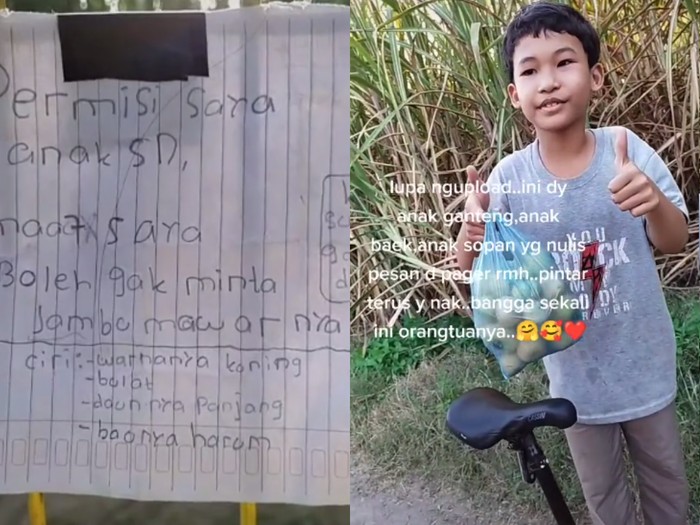 Permisi saya
anak SD,
maaf saya
Boleh gak minta
Jambu mawar nya
ciri:-warnanya kuning
-bulat
-daun nya panjang
-baunya harum
lupa ngupload..ini dy
anak ganteng,anak
baek,anak sopan yg nulis
pesan d pager rmh..pintar
terus y nak..bangga sekali
ini orangtuanya..🤗🥰❤️
YOU